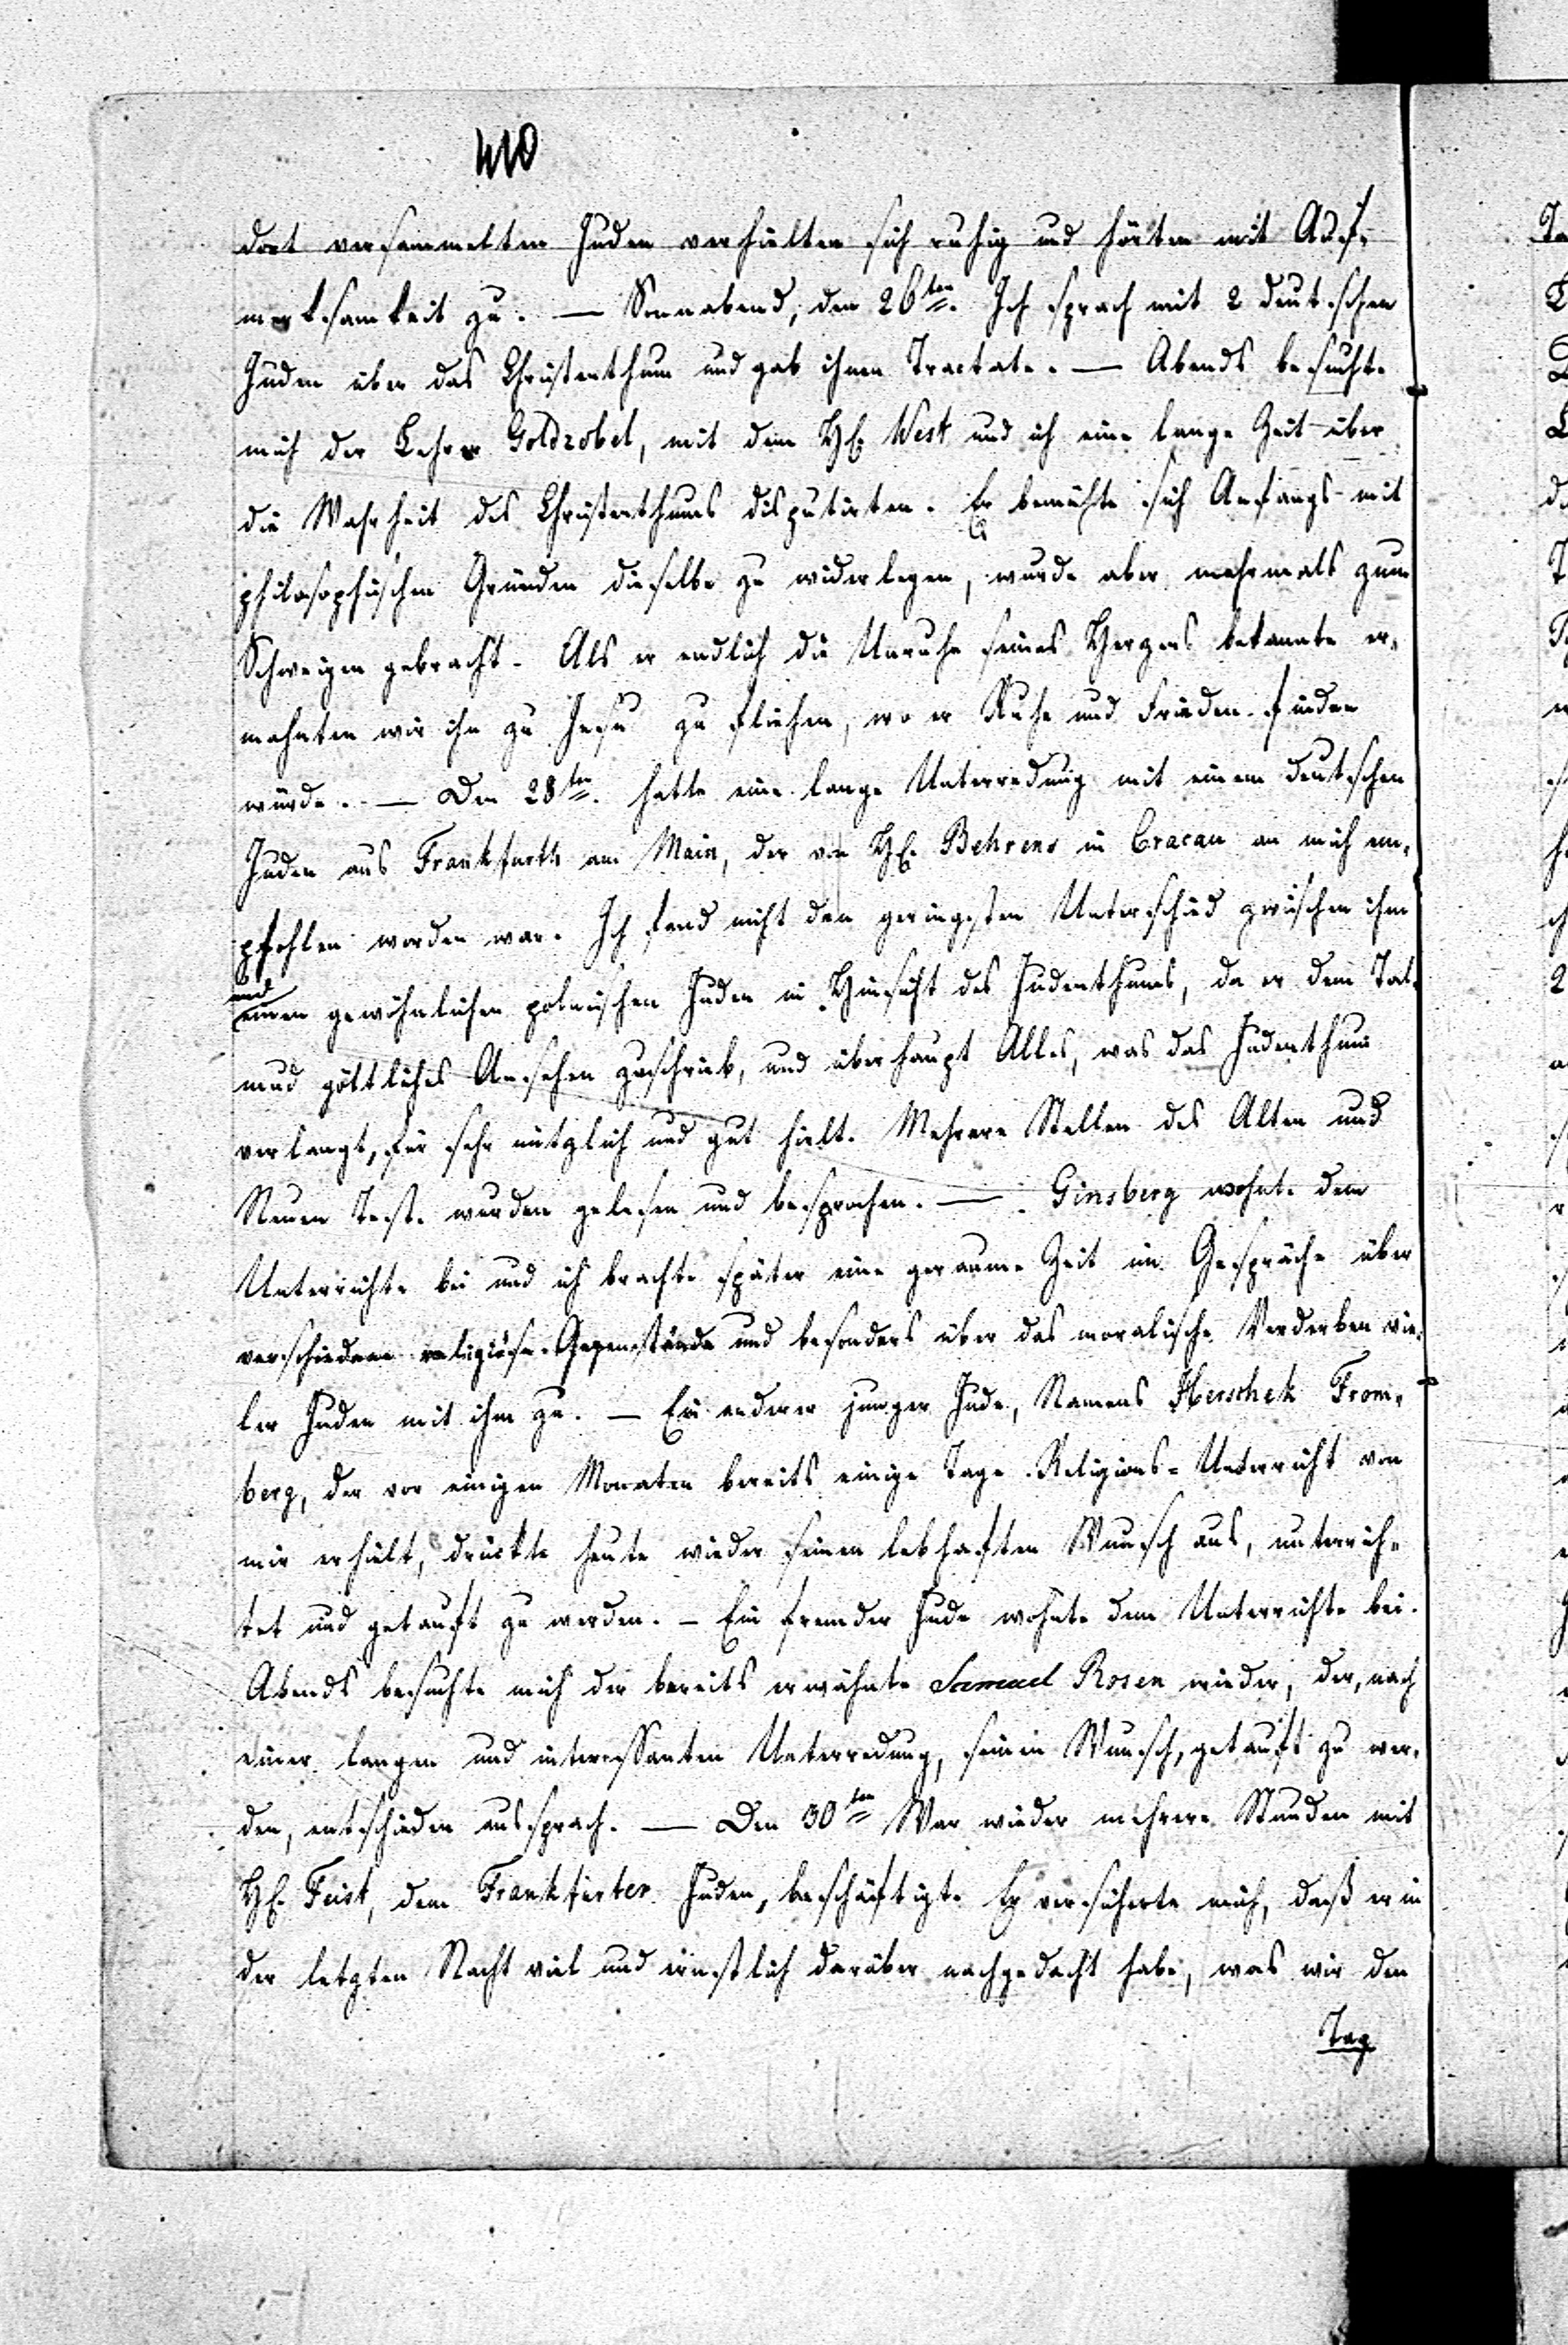 410
dort versammelten Juden verhielten sich ruhig und hörten mit Auf-
merksamkeit zu. — Sonnabend, den 26ten. Ich sprach mit 2 deutschen
Juden über das Christenthum und gab ihnen Tractate. — Abends besuchte
mich der Lehrer Goldzobel, mit dem H. West und ich eine lange Zeit über
die Wahrheit des Christenthums disputirten. Er bemühte sich Anfangs mit
philosophischen Gründen dieselbe zu widerlegen, wurde aber mehrmals zum
Schweigen gebracht. Als er endlich die Unruhe seines Herzens bekannte er-
mahnten wir ihn zu Jesu zu fliehen, wo er Ruhe und Frieden finden
würde. — Den 28ten. hatte eine lange Unterredung mit einem deutschen
Juden aus Frankfurth am Main, der von H. Behrens in Cracau an mich em-
pfohlen worden war. Ich fand nicht den geringsten Unterschied zwischen ihm
und
einen gewöhnlichen polnischen Juden in Hinsicht des Judenthums, da er dem Tal-
mud göttliches Ansehen zuschrieb, und überhaupt Alles, was das Judenthum
verlangt, für sehr nützlich und gut hielt. Mehrere Stellen des Alten und
Neuen Test. wurden gelesen und besprochen. — Ginsberg wohnte dem
Unterrichte bei und ich brachte später eine geraume Zeit im Gespräche über
verschiedene religiöse Gegenstände und besonders über das moralische Verderben vie-
ler Juden mit ihm zu. — Ein anderer junger Jude, Namens Herschek From-
berg, der vor einigen Monaten bereits einige Tage Religions-Unterricht von
mir erhielt, drückte heute wieder seinen lebhaften Wunsch aus, unterrich-
tet und getauft zu werden. — Ein fremder Jude wohnte dem Unterrichte bei.
Abends besuchte mich der bereits erwähnte Samuel Rosen wieder, der, nach
einer langen und interessanten Unterredung, seinen Wunsch, getauft zu wer-
den, entschieden aussprach. — Den 30ten War wieder mehrere Stunden mit
H. Feist, dem Frankfurter Juden, beschäftigt. Er versicherte mich, daß er in
der letzten Nacht viel und ernstlich darüber nachgedacht habe, was wir den
Tag